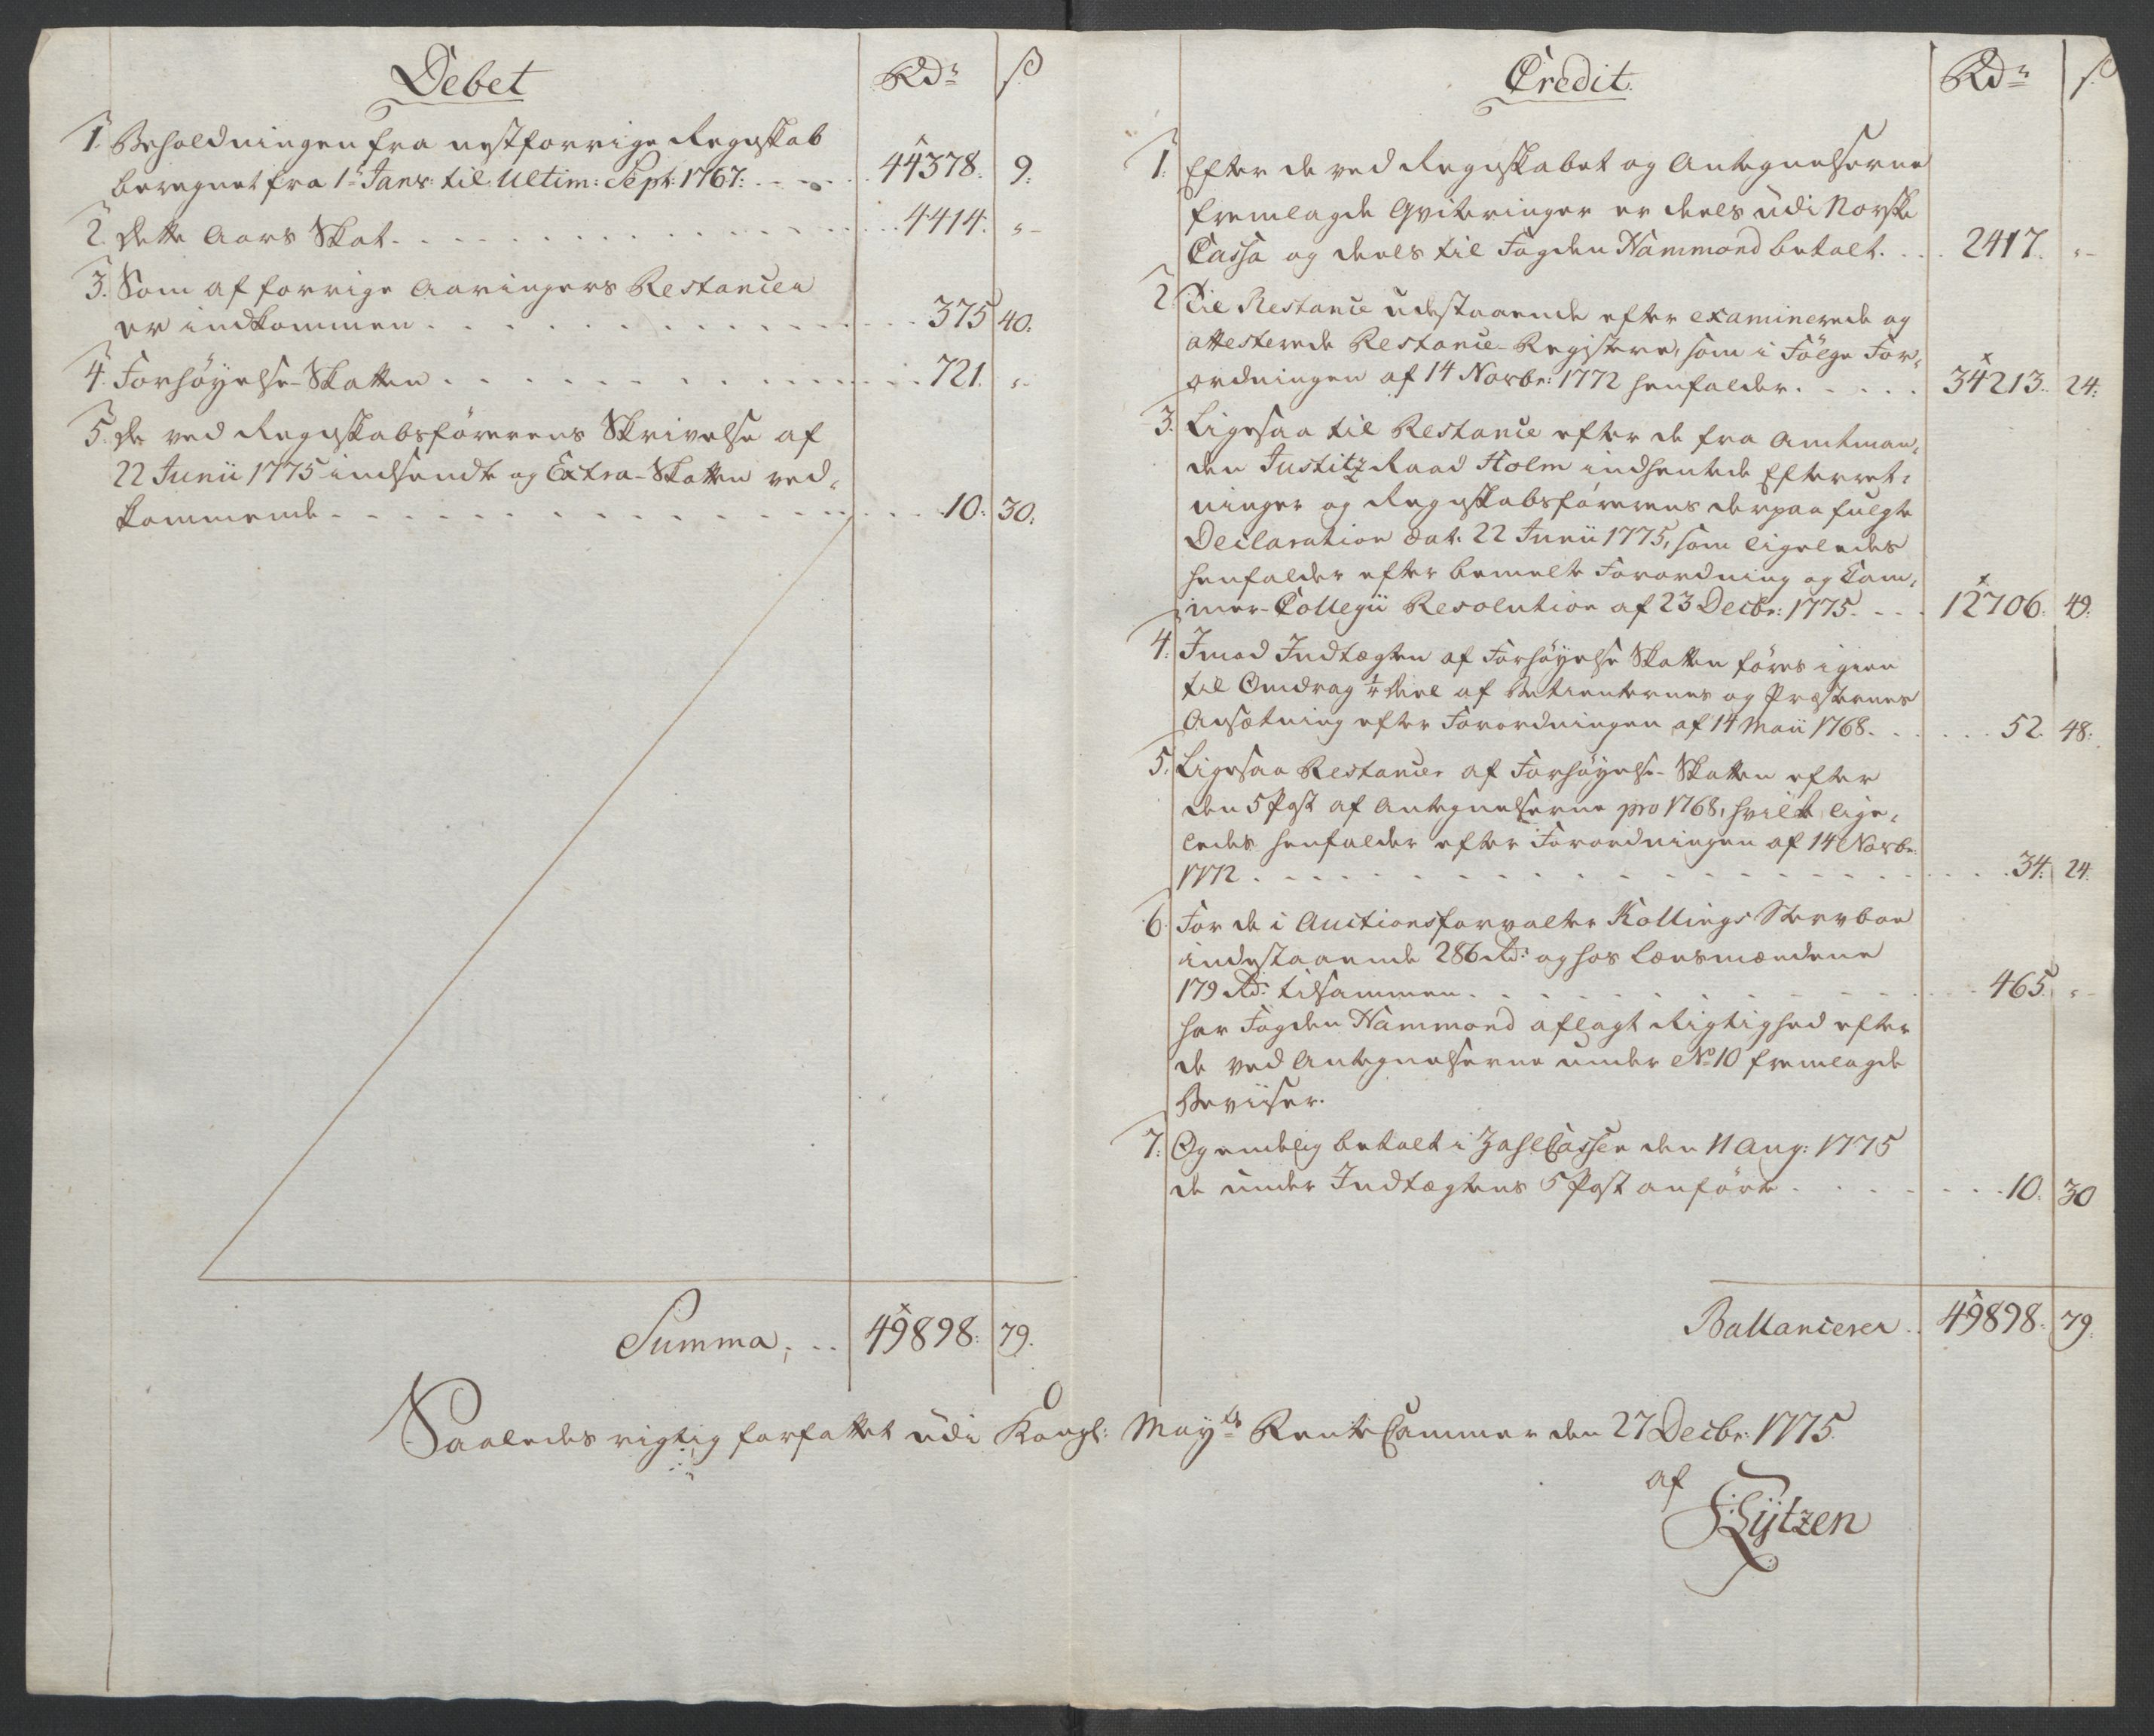 Debet
Rdr
ß
1. Beholdningen fra nestforrige Regnskab
beregnet fra 1te Janr: til Ultim: Sept: 1767: 44378. 9:
2. dette Aars Skat 4414. "
3. Som af forrige Aaringers Restancer
er indkommen 375 40.
4. Forhøyelse-Skatten 721. "
5. de ved Regnskabsførerens Skrivelse af
22 Junii 1775 indsendte og Extra-Skatten ved,
kommende 10: 30:
Summa, 49898: 79.
Credit.
Rdr
ß
1. Efter de ved Regnskabet og Antegnelserne
fremlagde Qviteringer er deels udi Norske
Cassa og deels til Fogden Hammond betalt. 2417. "
2. Til Restance udestaaende efter examinerede og
attesterede Restance-Registere, som i Følge For,
ordningen af 14 Novbr: 1772 henfalder. 34213. 24:
3. Ligesaa til Restance efter de fra Amtman,
den Justitz Raad Holm indhentede Efterret,
ninger og Regnskabsførerens derpaa fulgte
Declaration dat: 22 Junii 1775, som ligeledes
henfalder efter bemelte Forordning og Cam,
mer-Collegii Resolution af 23 Decbr: 1775. 12706. 49:
4. Imod Indtægten af Forhøyelse Skatten føres igien
til Omdrag 1/4 Deel af Betienternes og Præsternes
Ansætning efter Forordningen af 14 Maii 1768. 52. 48:
5. Ligesaa Restancer af Forhøyelse-Skatten efter
den 5 Post af Antegnelserne pro 1768, hvilke lige,
ledes henfalder efter Forordningen af 14 Novbr:
1772 34. 24.
6. For de i Auctionsforvalter Kollings Sterrboe
indestaaende 286 Rd: og hos Lænsmændene
179 Rd: tilsammen 465. "
har Fogden Hammond aflagt Rigtighed efter
de ved Antegnelserne under No 10 fremlagde
Beviiser.
7. Og endelig betalt i Zahl Cassen den 11 Aug: 1775
de under Indtægtens 5 Post anførte 10. 30
Ballancerer 49898. 79.
Saaledes rigtig forfattet udi Kongl: Mayts Rente Cammer den 27 Decbr: 1775.
af
Lützen